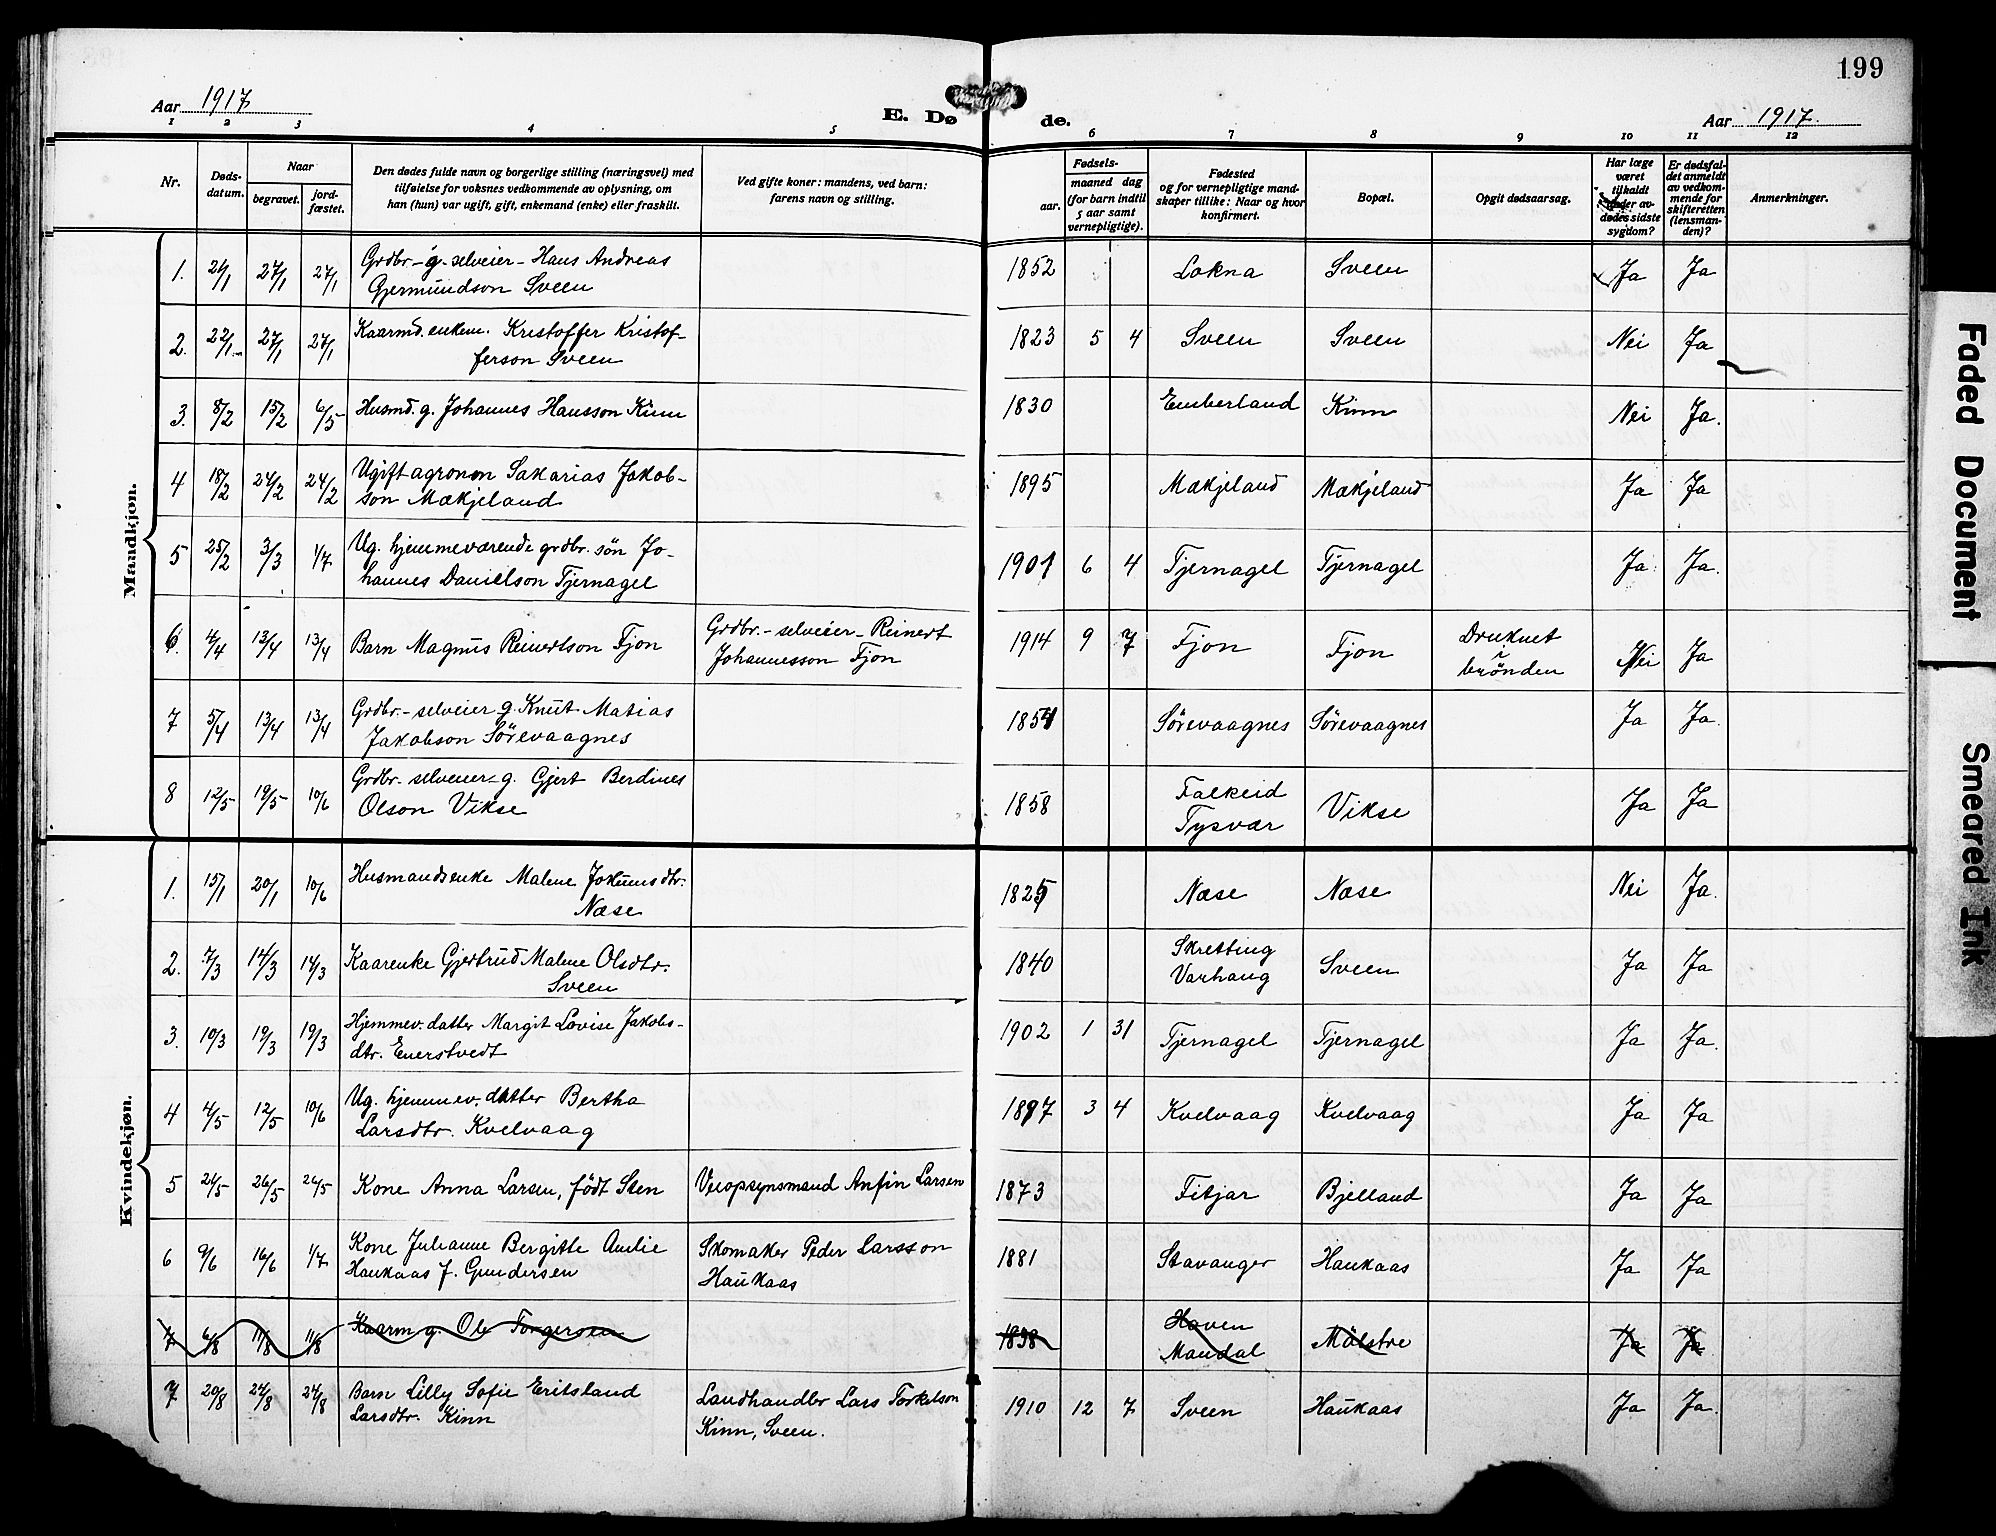 199
Aar 1917
E. Døde.
Aar 1917.
1 2 3 4 5 6 7 8 9 10 11 12
Nr.
Døds-
datum.
Naar
begravet.
jord-
fæstet.
Den dødes fulde navn og borgerlige stilling (næringsvei) med
tilføielse for voksnes vedkommende av oplysning, om
han (hun) var ugift, gift, enkemand (enke) eller fraskilt.
Ved gifte koner: mandens, ved barn:
farens navn og stilling.
Fødsels-
aar.
maaned dag
(for barn indtil
5 aar samt
vernepligtige).
Fødested
og for vernepligtige mand-
skaper tillike: Naar og hvor
konfirmert.
Bopæl.
Opgit dødsaarsag.
Har læge
været
tilkaldt
under av-
dødes sidste
sygdom?
Er dødsfal-
det anmeldt
av vedkom-
mende for
skifteretten
(lensman-
den)?
Anmerkninger.
Mandkjøn.
1. 21/1 27/1 27/1 Grdbr.-g. selveier- Hans Andreas
Gjermundson Sveen
1852 Lokna Sveen Ja Ja
2. 22/1 27/1 27/1 Kaarmd. enkem. Kristoffer Kristof-
ferson Sveen
1823 5 4 Sveen Sveen Nei Ja
3. 8/2 15/2 6/5 Husmd. g. Johannes Hansson Kinn
1830 Emberland Kinn Nei Ja.
4 18/2 24/2 24/2 Ugift agronom Sakarias Jakob-
son Mækjeland
1895 Mækjeland Mækjeland Ja Ja
5 25/2 3/3 1/7 Ug. hjemmeværende grdbr. søn Jo-
hannes Danielson Tjernagel
1901 6 4 Tjernagel Tjernagel Ja Ja.
6. 4/4 13/4 13/4 Barn Magnus Reinertson Fjon
Grdbr.- selveier- Reinert
Johannesson Fjon
1914 9 7 Fjon Fjon Druknet
i
brønden
Nei Ja
7 5/4 13/4 13/4 Grdbr.- selveier g. Knut Matias
Jakobson Sørevaagnes
1854 Sørevaagnes Sørevaagnes Ja Ja.
8 12/5 19/5 10/6 Grdbr. selveier-g. Gjert Berdines
Olson Vikse
1858 Falkeid
Tysvær
Vikse Ja Ja
Kvindekjøn.
1. 15/1 20/1 10/6 Husmandsenke Malene Jokumsdtr.
Næse
1825 Næse Næse Nei Ja.
2. 7/3 14/3 14/3 Kaarenke Gjertrud Malene Olsdtr.
Sveen
1840 Skretting
Varhaug
Sveen Ja Ja
3. 10/3 19/3 19/3 Hjemmev. datter Margit Lovise Jakobs-
dtr. Enerstvedt
1902 1 31 Tjernagel Tjernagel Ja Ja.
4 4/5 12/5 10/6 Ug. hjemmev. datter Bertha
Larsdtr. Kvelvaag
1897 3 4 Kvelvaag Kvelvaag Ja Ja
5 21/5 26/5 26/5 Kone Anna Larsen, født Sten
Veiopsynsmand Anfin Larsen
1873 Fitjar Bjelland Ja Ja
6 9/6 16/6 1/7 Kone Julianne Bergitte Amlie
Haukaas f. Gundersen
Skomaker Peder Larsson
Haukaas
1881 Stavanger Haukaas Ja Ja
7 6/8 11/8 11/8 Kaarm g. Ole Torgersen
1838 Hoven
Mandal
Mølstre Ja Ja
7 20/8 24/8 24/8 Barn Lilly Sofie Eritsland
Larsdtr. Kinn
Landhandler Lars Torkelson
Kinn, Sveen.
1910 12 7 Sveen Haukaas Ja Ja.
Faded Document
Smeared Ink